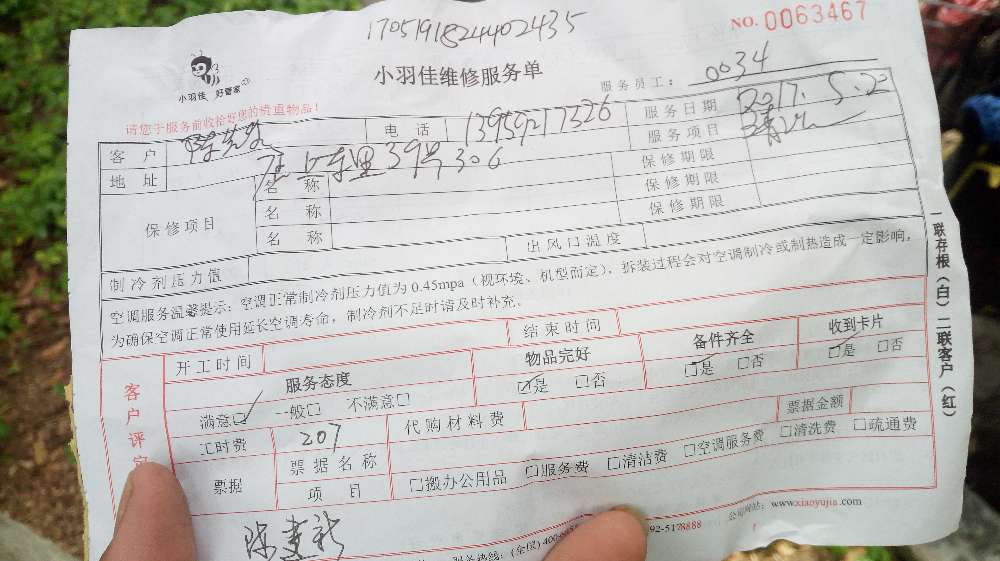 1705191824402435
NO. 0063467
小羽佳 好管家
小羽佳维修服务单
服务员工： 0034
请您于服务前收拾好您的贵重物品！
客户 电话 13959217326 服务日期 2017.5.20
地址 39号306 服务项目 清洗
保修项目 名称 保修期限
名称 保修期限
名称 保修期限
制冷剂压力值 出风口温度
空调服务温馨提示：空调正常制冷剂压力值为0.45mpa（视环境、机型而定），拆装过程会对空调制冷或制热造成一定影响，
为确保空调正常使用延长空调寿命，制冷剂不足时请及时补充。
一联存根（白）二联客户（红）
客户评定
开工时间 结束时间
服务态度 物品完好 备件齐全 收到卡片
满意□ 一般□ 不满意□ □是 □否 □是 □否 □是 □否
工时费 207 代购材料费 票据金额
票据 票据名称 □搬办公用品 □服务费 □清洁费 □空调服务费 □清洗费 □疏通费
项目
服务热线：（全国）400- 92-5178888 公司网站：www.xiaoyujia.com